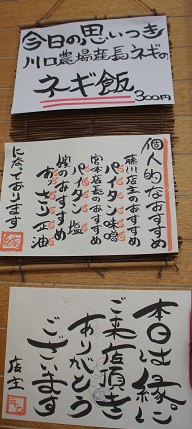 今日の思いつき
川口農場産長ネギの
ネギ飯
300円
個人的なおすすめ
藤川店主のおすすめ
パイタン味噌
宮本店長のおすすめ
パイタン塩
嫁のおすすめ
あっさり正油
になっております
本日は縁に
ご来店頂き
ありがとう
ございます
店主